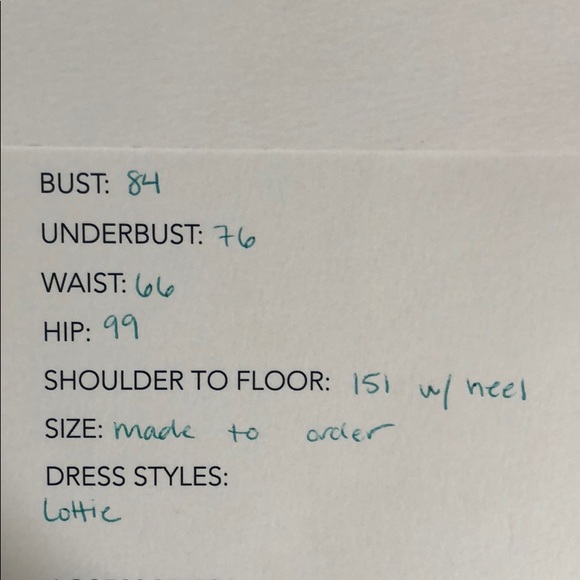 BUST: 84
UNDERBUST: 76
WAIST: 66
HIP: 99
SHOULDER TO FLOOR: 151 w/ heel
SIZE: made to order
DRESS STYLES:
Lottie